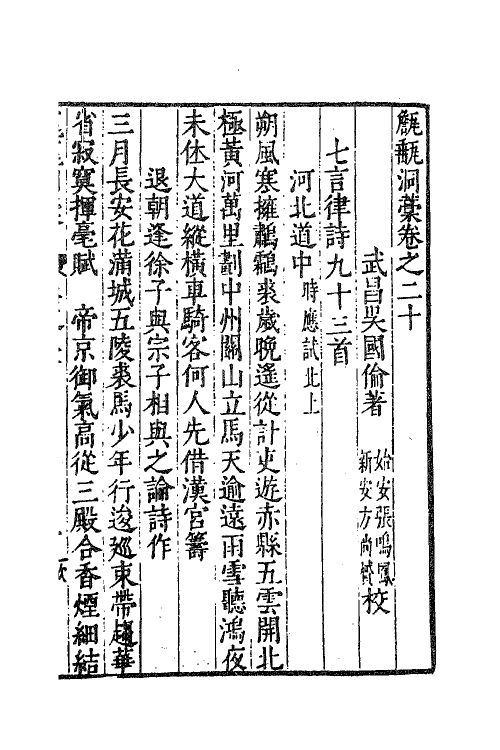 甔甀洞藁卷之二十
武昌吳國倫著 始安張鳴鳳 新安方尚贇校
七言律詩九十三首
河北道中時應試北上
朔風寒擁鷫鸘裘歲晚遥從計吏遊赤縣五雲開北
極黃河萬里劃中州關山立馬天逾遠雨雪聽鴻夜
未休大道縱橫車騎客何人先借漢宮籌
退朝逢徐子與宗子相與之論詩作
三月長安花滿城五陵裘馬少年行逡廵束帶趨華
省寂寞揮毫賦 帝京御氣高從三殿合香煙細結